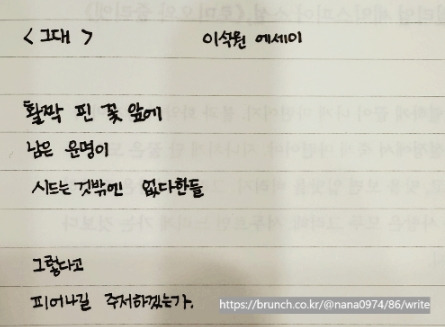 <그대> 이석원 에세이
활짝 핀 꽃 앞에
남은 운명이
시드는것밖엔 없다한들
그렇다고
피어나길 주저하겠는가.
https://brunch.co.kr/@nana0974/86/write